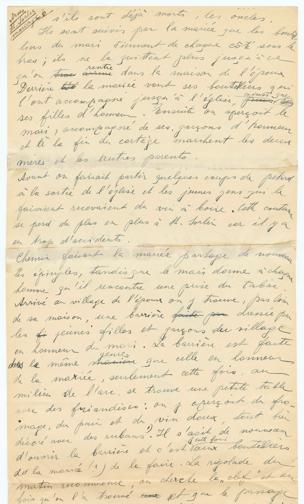 s'ils sont déjà morts, les oncles.
Ils sont suivis par la mariée que les boute
liers du mari tiennent de chaque côté sous le
bras; ils ne la quittent plus jusqu'à ce
qu'on rentre dans la maison de l'époux.
Derrière la mariée vont ses boutéliers qui
l'ont accompagné jusqu'à l'église,
ses filles d'honneur. Ensuite on aperçoit le
mari, accompagné de ses garçons d'honneur
et à la fin du cortège marchent les deux
mères et les autres parents.
Avant on faisait partir quelques coups de pétard
à la sortie de l'église et les jeunes gens qui le
faisaient recevaient du vin à boire. Cette coutume
se perd de plus en plus à St. Sorlin car il y a
eu trop d'accidents.
Chemin faisant la mariée partage de nouveau
les épingles, tandis que le mari donne à chaque
homme qu'il rencontre une prise de tabac.
Arrivé au village de l'époux on y trouve, pas loin
de sa maison, une barrière dressée par
les jeunes filles et garçons du village
en honneur du mari. La barrière est faite
de la même que celle en honneur
de la mariée, seulement cette fois, au
milieu de l'arc se trouve une petite table
avec des friandises: on y aperçoit du fro
mage, du pain et du vin doux, tout bien
décoré avec des rubans. Il s'agit de nouveau
d'ouvrir la barrière et c'est aux boutéliers
de la mariée (!) de le faire. La rigolade du
matin recommence, on cherche la clef et une
fois qu'on l'a trouvé et que le passage